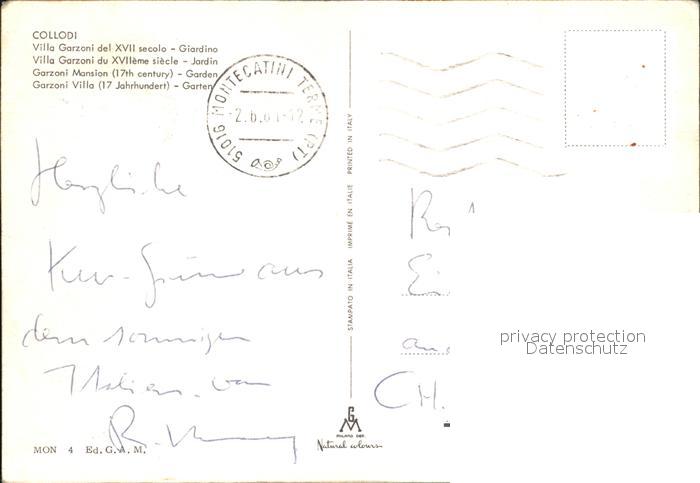 COLLODI
Villa Garzoni del XVII secolo - Giardino
Villa Garzoni du XVIIème siècle - Jardin
Garzoni Mansion (17th century) - Garden
Garzoni Villa (17 Jahrhundert) - Garten
51016 MONTECATINI TERME (PT)
Herzliche
Kur-Grüsse aus
dem sonnigen
Italien. von
STAMPATO IN ITALIA IMPRIMÉ EN ITALIE PRINTED IN ITALY
CH.
privacy protection
Datenschutz
GM
MILANO DEP.
Natural colours
MON 4 Ed. G. A. M.